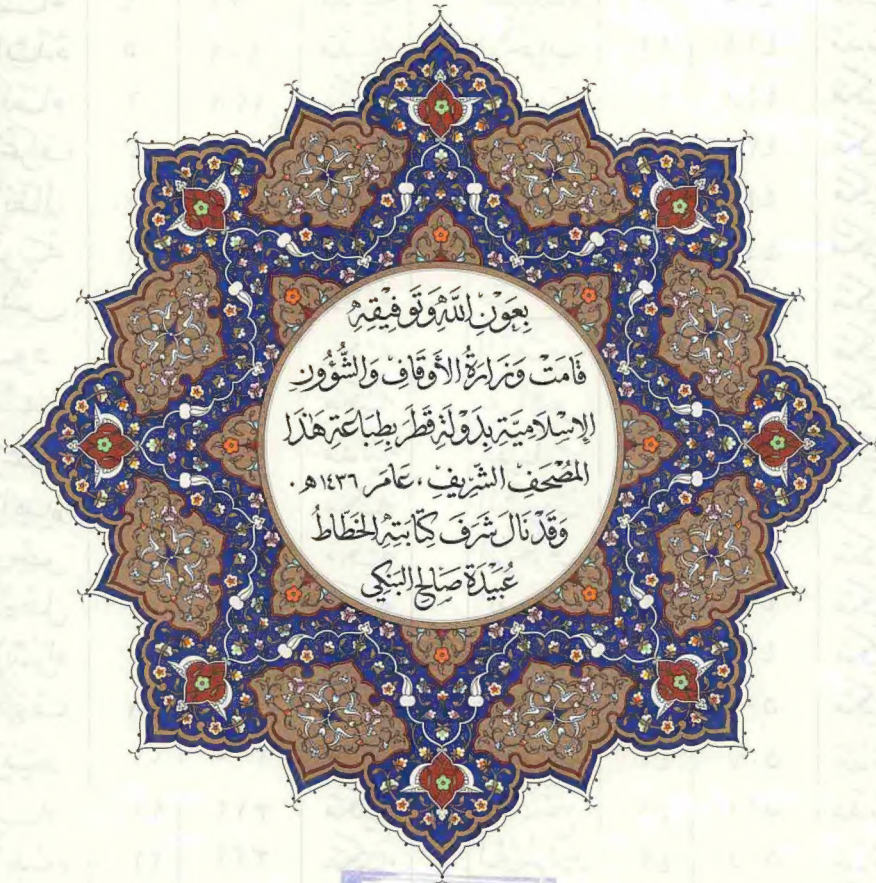 بِعَوْنِ اللَّهِ وَتَوْفِيقِهِ
قَامَتْ وَزَارَةُ الأَوقَافِ وَالشُّؤُونِ
الإِسْلَامِيَّةِ بِدَوْلَةِ قَطَرَ بِطِبَاعَةِ هَذَا
المُصْحَفِ الشَّرِيفِ، عَامَ ١٤٣٦هـ.
وَقَدْ نَالَ شَرَفَ كِتَابَتِهِ الخَطَّاطُ
عُبَيْدَة صَالِح البَنكِي